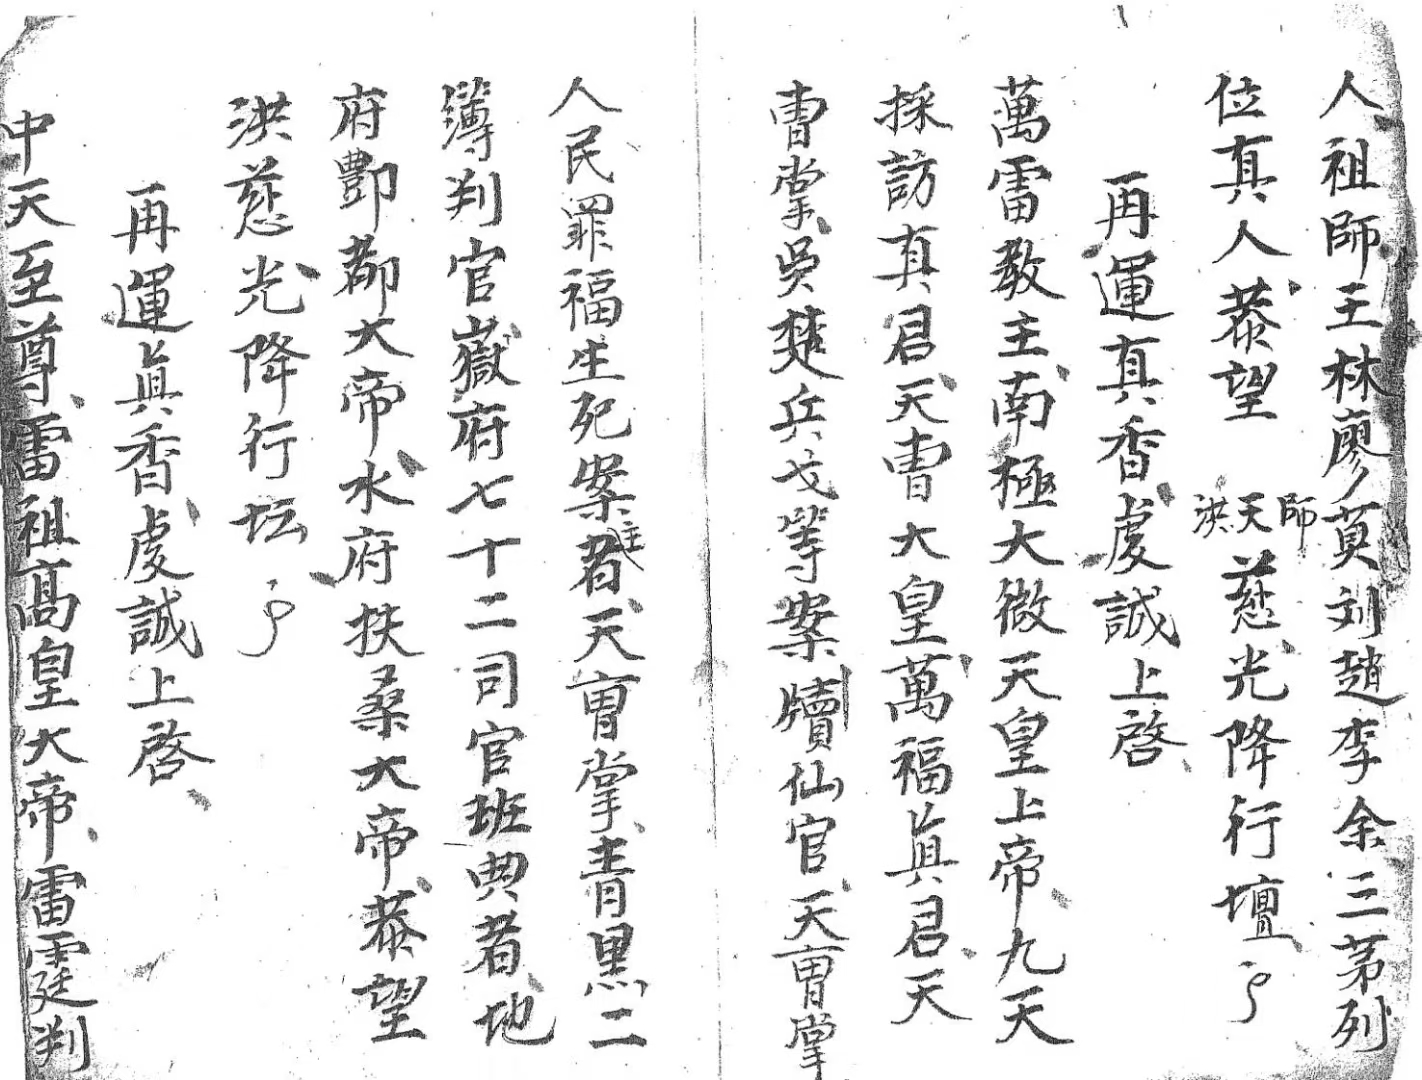 人祖師王林廖莫刘趙李余三苐列
位真人恭望
師
天
洪
慈光降行壇
再運真香虔誠上啓
萬雷教主南極大微天皇上帝九天
採訪真君天曹大皇萬福眞君天
曹掌吳楚兵戈等案牘仙官天曹掌
人民罪福生死案者天曹掌青黑二
主
簿判官嶽府七十二司官班典者地
府酆都大帝水府扶桑大帝恭望
洪慈光降行坛
再運眞香虔誠上啓
中天至尊雷祖高皇大帝雷霆判